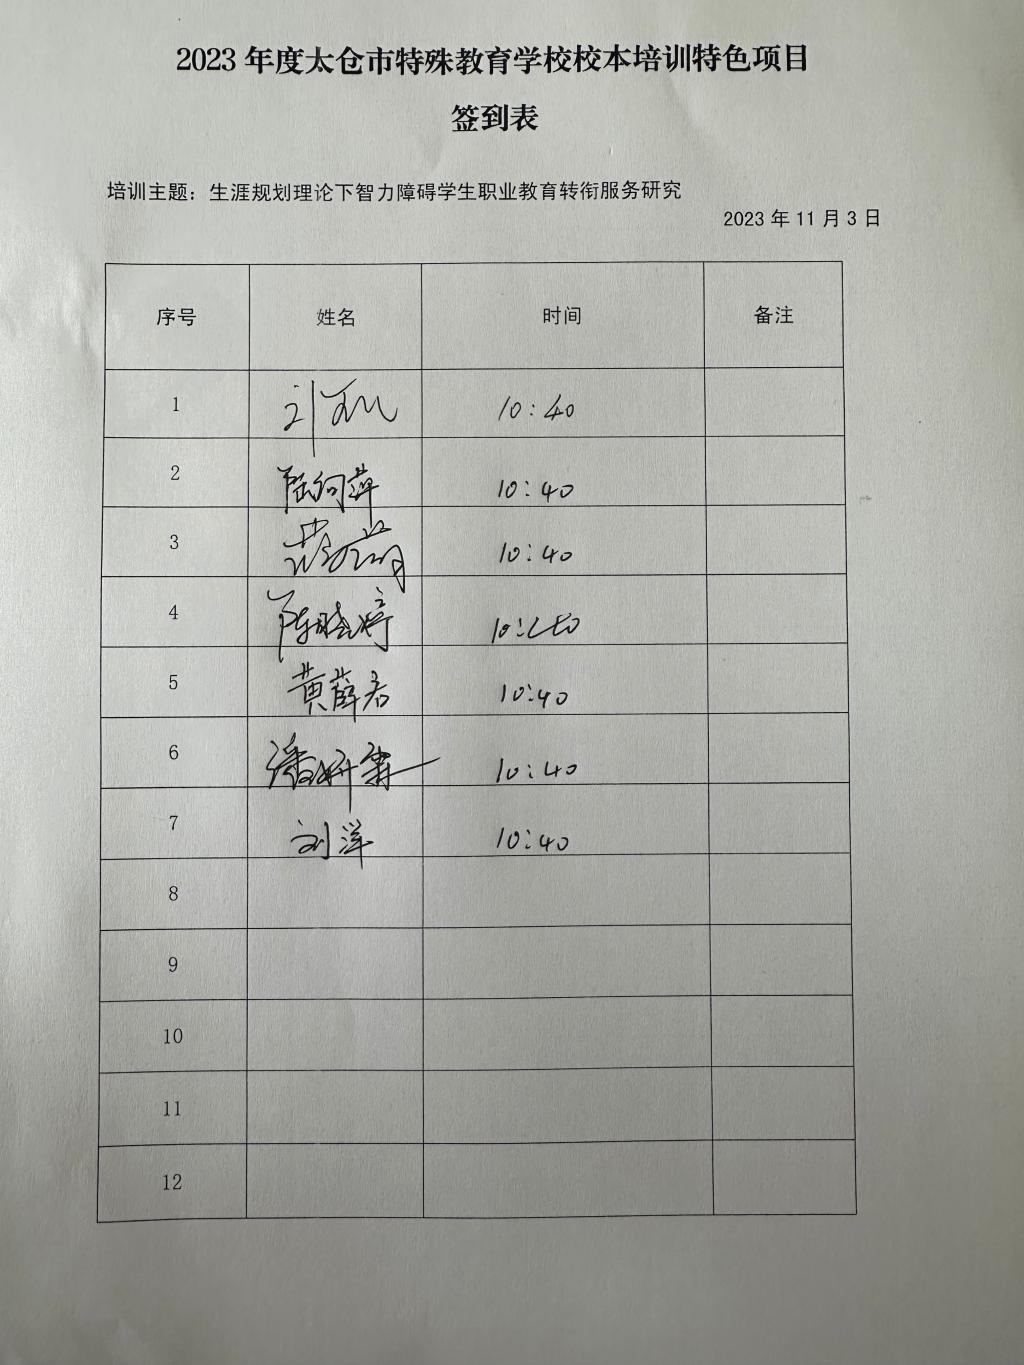 2023 年度太仓市特殊教育学校校本培训特色项目
签到表
培训主题：生涯规划理论下智力障碍学生职业教育转衔服务研究
2023 年 11 月 3 日
序号 姓名 时间 备注
1 刘 10:40
2 陆 萍 10:40
3 10:40
4 陈晓婷 10:40
5 黄薛君 10:40
6 潘妍霖 10:40
7 刘洋 10:40
8
9
10
11
12